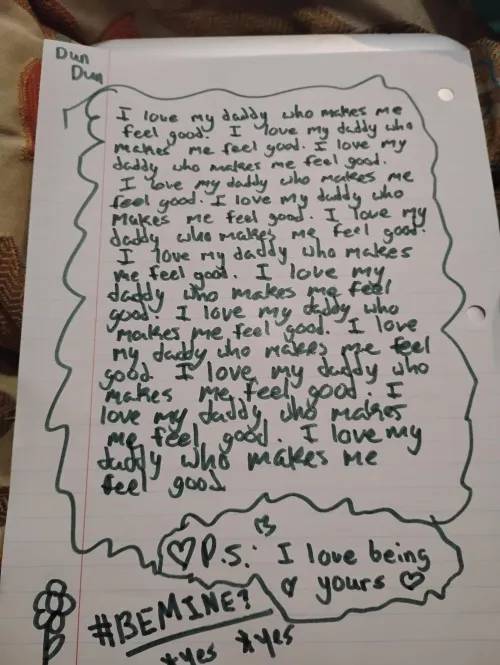 Dun
Dun
I love my daddy who makes me
feel good. I love my daddy who
makes me feel good. I love my
daddy who makes me feel good.
I love my daddy who makes me
feel good. I love my daddy who
makes me feel good. I love my
daddy who makes me feel good.
I love my daddy who makes
me feel good. I love my
daddy who makes me feel
good. I love my daddy who
makes me feel good. I love
my daddy who makes me feel
good. I love my daddy who
makes me feel good. I
love my daddy who makes
me feel good. I love my
daddy who makes me
feel good
P.S.: I love being
yours
#BEMINE?
*yes *yes